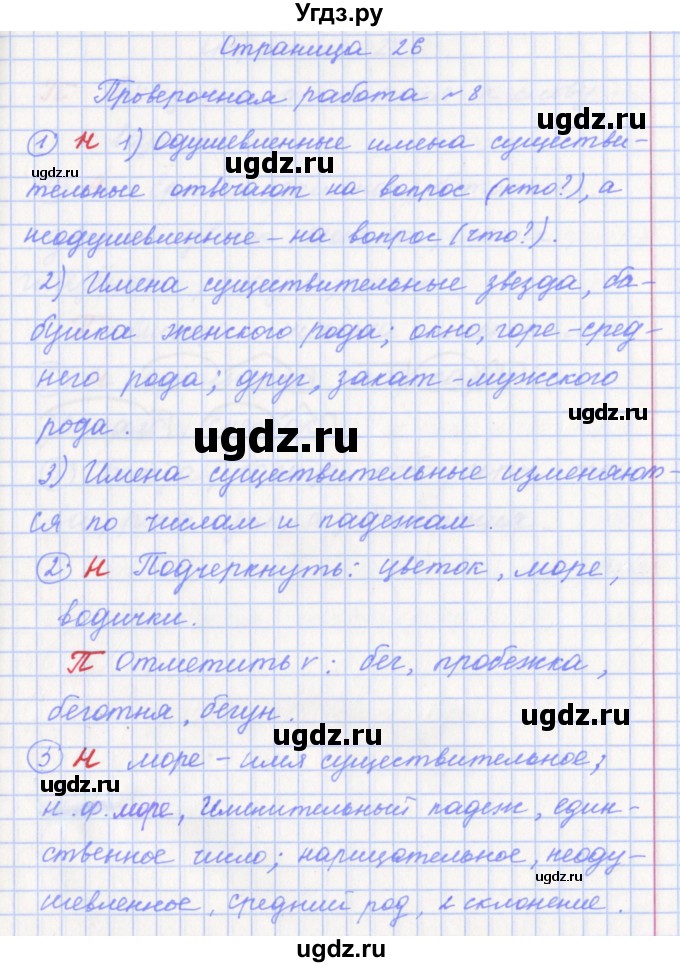 Угдз.ру
Страница 26
Проверочная работа № 8
ugdz.ru
1 Н 1) Одушевленные имена существи-
ugdz.ru
ugdz.ru
тельные отвечают на вопрос (кто?), а
неодушевленные – на вопрос (что?).
2) Имена существительные звезда, ба-
бушка женского рода; окно, горе – сред-
него рода; друг, закат – мужского
рода.
ugdz.ru
ugdz.ru
3) Имена существительные изменяют-
ся по числам и падежам.
ugdz.ru
2 Н Подчеркнуть: цветок, море,
водички.
П Отметить v: бег, пробежка,
беготня, бегун.
ugdz.ru
3 Н море – имя существительное;
ugdz.ru
н.ф. море, Именительный падеж, един-
ственное число; нарицательное, неоду-
ugdz.ru
шевленное, средний род, 2 склонение.
ugdz.ru